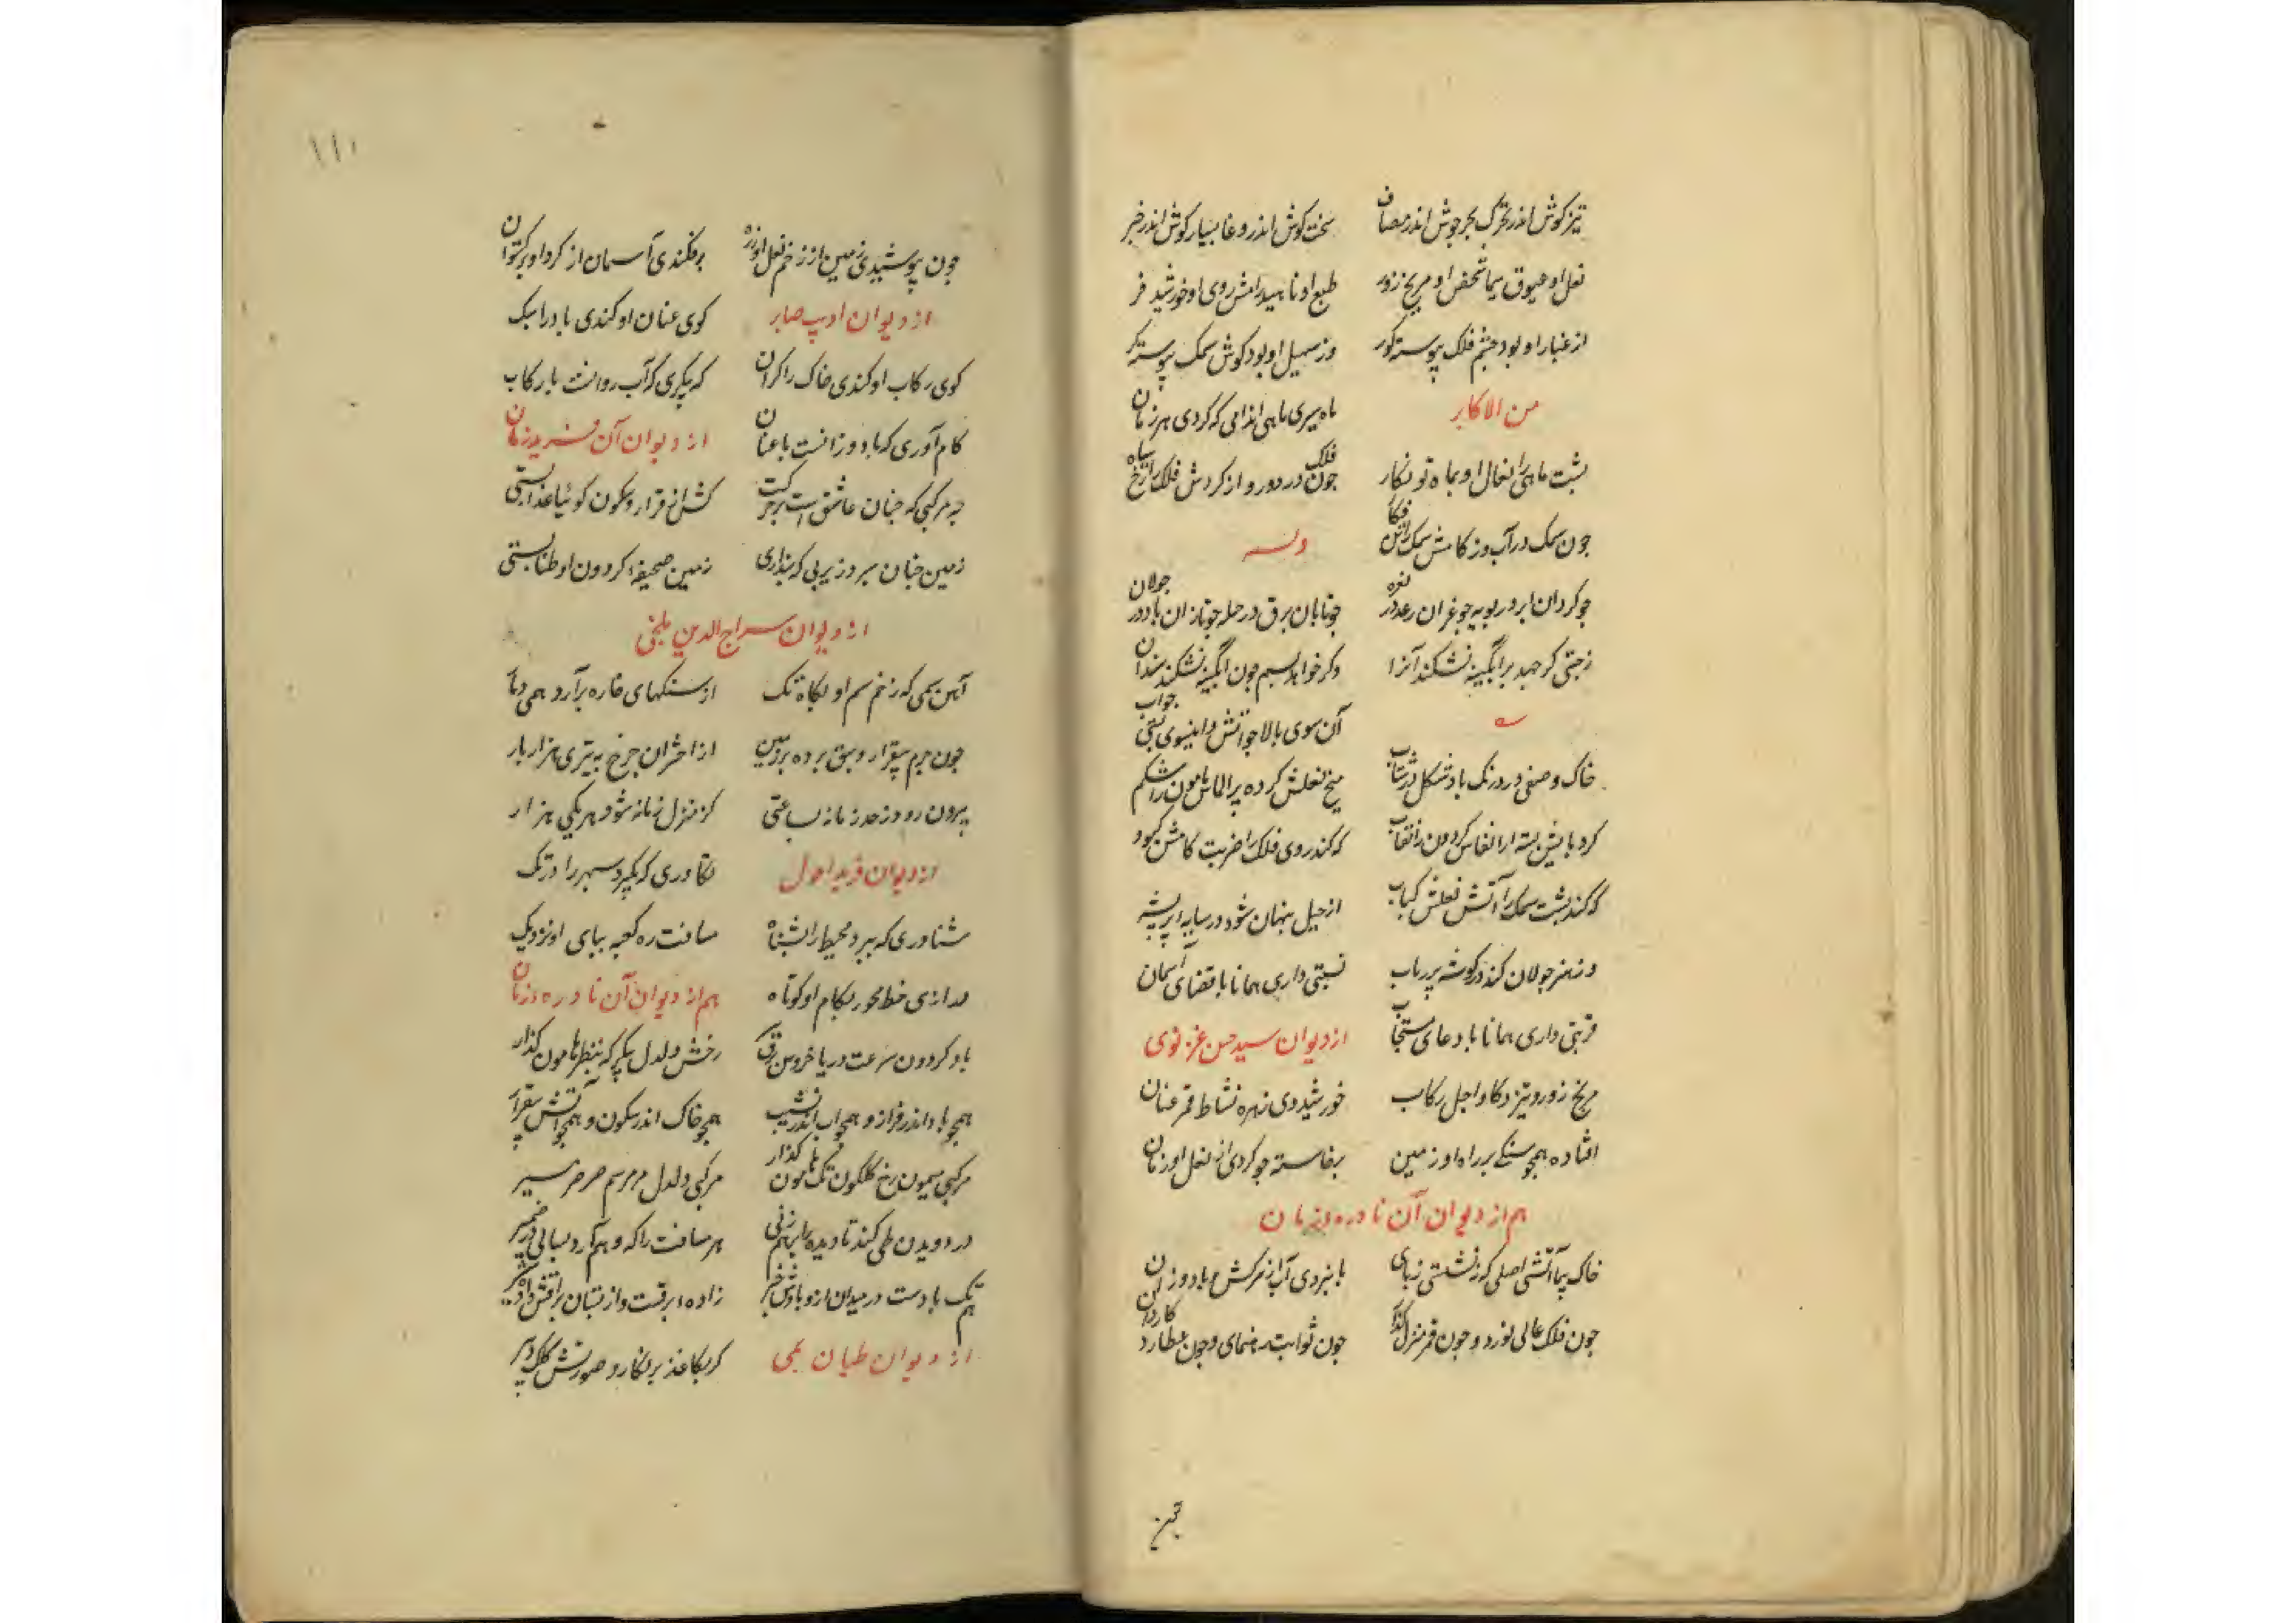 تیزکوش اندر تحرک بحرجوش اندر مصاف سخت کوش اندر وغا بسیارکوش اندر خبر
نعل او عیوق سیما شخص او مریخ زور طبع او ناهید رامش روی او خورشید فر
از غبار او بود چشم فلک پیوسته کور وز سهیل او بود کوش سمک پیوسته کر
من الاکابر ماه سیری ماهی اندامی که کردی هر زمان
پشت ماهی را نعال او بماه نو نکار چون فلک در دور و از کردش فلک را رخ سیاه
چون سمک در آب وز کامش سمک را تن فکار وله
چو کردان ابر در پویه چو غران رعد در نعره چو تابان برق در حمله چو تازان باد در جولان
زجستی کر جهد بر آبگینه نشکند آنرا وکر خواهد بسم چون آبگینه بشکند سندان
آن سوی بالا چو آتش واینسوی پستی چو آب
خاک وصفی در درنک باد شکل در شتاب میخ نعلش کرده پر الماس هامون را شکم
کرد بایش بسته از انفاس کردون را نقاب که کند روی فلک را ضربت کامش کبود
که کند پشت سمک را آتش نعلش کباب از حیل پنهان شود در سایه پر پشه
وز هنر جولان کند در کوشه پر ذباب نسبتی داری همانا با قضای آسمان
قربتی داری همانا با دعای مستجاب از دیوان سید حسن غزنوی
مریخ زور و تیز دکا و اجل رکاب خورشید دی زهره نشاط قمر عنان
افتاده همچو سنکی بر راه او زمین برخاسته چو کردی از نعل او زمان
هم از دیوان آن نادره زمان
خاک پیما آتشی اصلی که ننشستی زپای بانبردی آب از سرکش باد وزان
چون فلک عالی نورد و چون قمر منزل کذار چون ثوابت رهنمای و چون عطارد کاردان
۱۱۱
چون پوشیدی زمین از زخم نعل او زره برفکندی آسمان از کرد او برکستوان
از دیوان ادیب صابر کوی عنان او کندی باد را سبک
کوی رکاب او کندی خاک را کران که پیکری که آب روانست با رکاب
کام آوری که باد وزانست با عنان از دیوان آن فرید زمان
چه مرکبی که چنان عاشق است بر حرکت کش از قرار و سکون کوئیا عذابستی
زمین چنان سپرد زیر پی که پنداری زمین صحیفه کردون او طنابستی
از دیوان سراج الدین بلخی
آهن سمی که زخم سم او بکاه تک از سنکهای خاره برآرد همی دمار
چون جرم بیقرار و سبق برده بر زمین از اختران چرخ به تیزی هزار بار
بیرون رود زحد زمانه بساعتی کز منزل زمانه شود هر یکی هزار
از دیوان فرید احول تکاوری که بگیرد سپهر را در تک
شناوری که ببرد محیط را بشناه مسافت ره کعبه بپای او نزدیک
درازی خط محور بکام او کوتاه هم از دیوان آن نادره زمان
باد کردون سرعت دریا خروش برق رخش دلدل پیکر که هامون کذار
همچو باد اندر فراز و همچو آب اندر نشیب همچو خاک اندر سکون و همچو آتش بیقرار
مرکبی میمون رخ کلکون تک هامون کذار مرکبی دلدل سم صرصر مسیر
در دویدن طی کند تا دیده را برهم زنی هر مسافت را که وهم آرد بسالی در ضمیر
هم تک بادست در میدان ازو زاده ابرقست واز پستان برقش داده شیر
از دیوان طیان بمی کر بکاغذ بر نکارد صورتش کلک دبیر